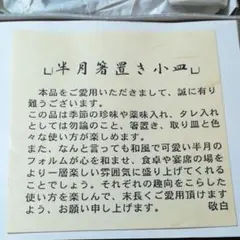 半月箸置き小皿
本品をご愛用いただきまして、誠に有
り難うございます。
この品は季節の珍味や薬味入れ、タレ入れ
としては勿論のこと、箸置き、取り皿と色
々な使い方が楽しめます。
また、なんと言っても和風で可愛い半月の
フォルムが心を和ませ、食卓や宴席の場を
より一層楽しい雰囲気に盛り上げてくれる
ことでしょう。それぞれの趣向をこらした
使い方を楽しんで、末長くご愛用頂けます
よう、お願い申し上げます。 敬白